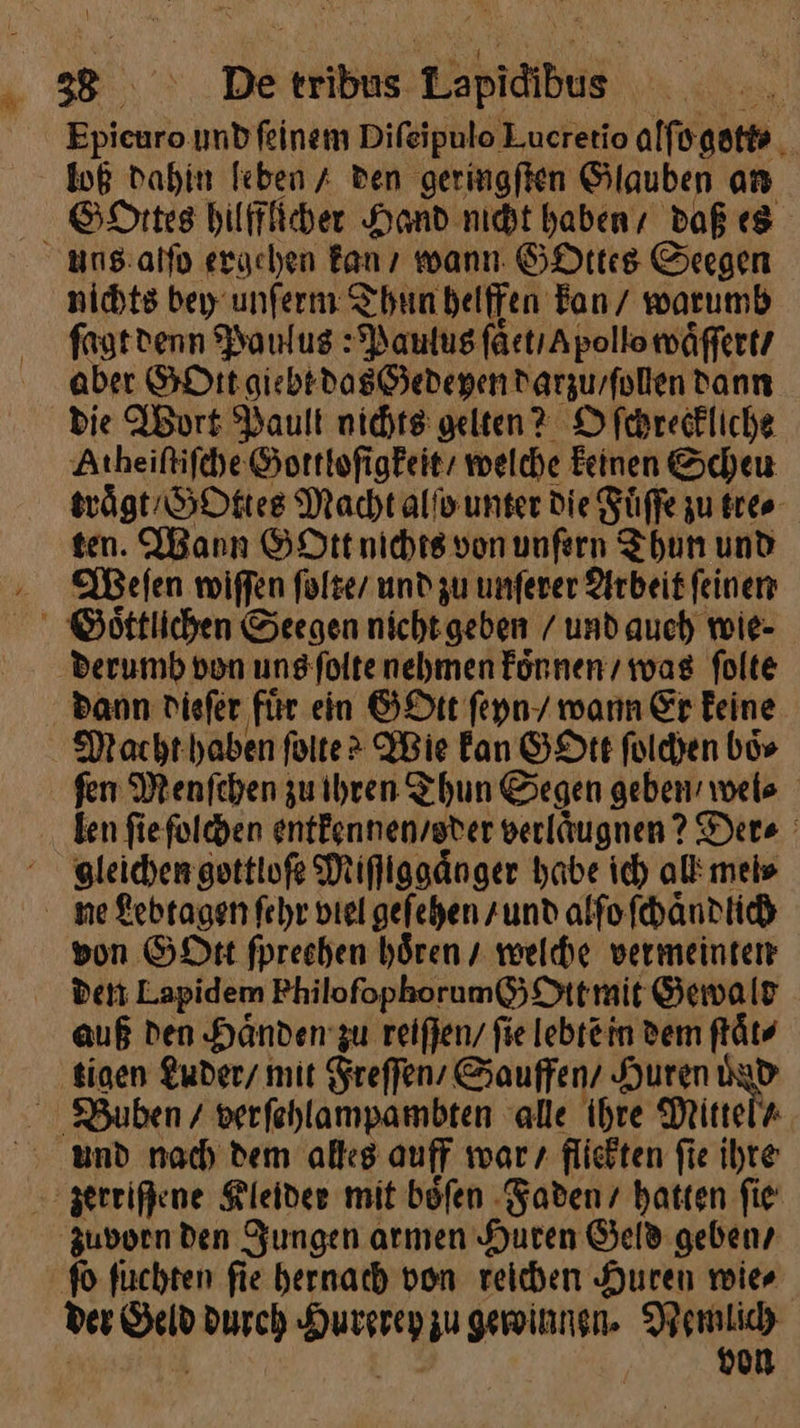 38 De tribus Lapidibus
Epicuro und ſeinem Diſcipulo Lucretio alſo gott⸗
loß dahin leben / den geringſten Glauben an
GOttes hilfflicher Hand nicht haben / daß es
uns alſo ergehen kan / wann GOttes Seegen
nichts bey unſerm Thun helffen kan / warumb
ſagt denn Paulus : Paulus ſaͤet / Apollo waͤſſert /
aber GOtt giebt das Gedeyen darzu / ſollen dann
die Wort Pauli nichts gelten? O ſchreckliche
Atheiſtiſche Gottloſigkeit / welche keinen Scheu
traͤgt / GOttes Macht alſo unter die Fuͤſſe zu tre⸗
ten. Wann GOtt nichts von unſern Thun und
Weſen wiſſen ſolte / und zu unſerer Arbeit ſeinen
Goͤttlichen Seegen nicht geben / und auch wie⸗
derumb von uns ſolte nehmen koͤnnen / was ſolte
dann dieſer fuͤr ein GOtt ſeyn / wann Er keine
Macht haben ſolte? Wie kan GOtt ſolchen boͤ⸗
ſen Menſchen zu ihren Thun Segen geben / wei⸗
len ſie ſolchen entkennen / oder verlaͤugnen? Der⸗
gleichen gottloſe Miſſiggaͤnger habe ich all mei⸗
ne Lebtagen ſehr viel geſehen / und alſo ſchaͤndlich
von GOtt ſprechen hoͤren / welche vermeinten
den Lapidem Philoſophorum GOtt mit Gewalt
auß den Haͤnden zu reiſſen / ſie lebtẽ in dem ſtaͤt⸗
tigen Luder / mit Freſſen / Sauffen / Huren uñd
Buben / verſchlampambten alle ihre Mittel /
und nach dem alles auff war / flickten ſie ihre
zerriſſene Kleider mit boͤſen Faden / hatten ſie
zuvorn den Jungen armen Huren Geld geben /
ſo ſuchten ſie hernach von reichen Huren wie⸗
der Geld durch Hurerey zu gewinnen. Nemlich
von